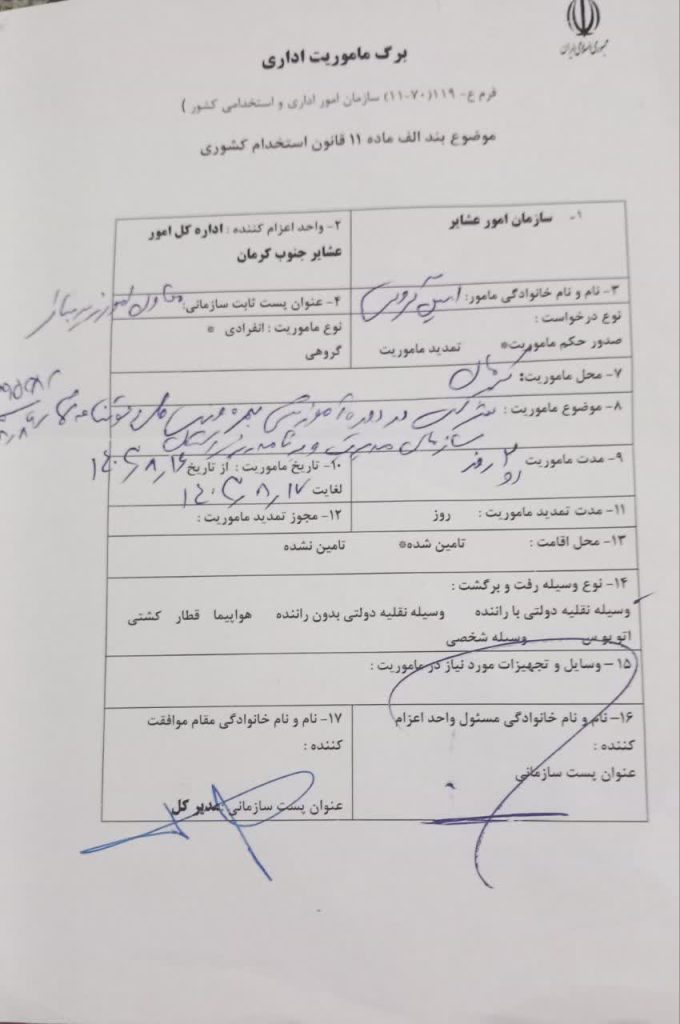 جمهوری اسلامی ایران
برگ ماموریت اداری
فرم ع- ۱۱۹(۷۰-۱۱) سازمان امور اداری و استخدامی کشور )
موضوع بند الف ماده ۱۱ قانون استخدام کشوری
۱- سازمان امور عشایر
۲- واحد اعزام کننده : اداره کل امور
عشایر جنوب کرمان
۳- نام و نام خانوادگی مامور:
۴- عنوان پست ثابت سازمانی: معاون امور زیربنائی
نوع درخواست :
صدور حکم ماموریت* تمدید ماموریت
نوع ماموریت : انفرادی *
گروهی
۷- محل ماموریت: کرمان
۸- موضوع ماموریت : شرکت در دوره آموزشی بهره وری
سازمان مدیریت و برنامه ریزی استان
۹- مدت ماموریت ۲ روز
۱۰- تاریخ ماموریت : از تاریخ ۱۴۰۴/۸/۱۶
لغایت ۱۴۰۴/۸/۱۷
۱۱- مدت تمدید ماموریت : روز
۱۲- مجوز تمدید ماموریت :
۱۳- محل اقامت : تامین شده* تامین نشده
۱۴- نوع وسیله رفت و برگشت :
وسیله نقلیه دولتی با راننده وسیله نقلیه دولتی بدون راننده هواپیما قطار کشتی
اتوبوس وسیله شخصی
۱۵ – وسایل و تجهیزات مورد نیاز در ماموریت :
۱۶– نام و نام خانوادگی مسئول واحد اعزام
کننده :
عنوان پست سازمانی
۱۷- نام و نام خانوادگی مقام موافقت
کننده :
عنوان پست سازمانی مدیر کل